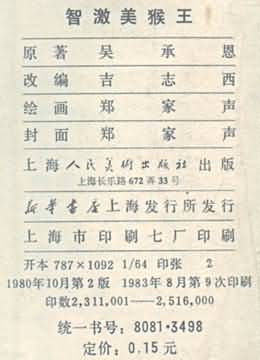 智激美猴王
原著 吴承恩
改编 吉志西
绘画 郑家声
封面 郑家声
上海人民美术出版社 出版
上海长乐路672弄33号
新华书店上海发行所发行
上海市印刷七厂印刷
开本 787×1092 1/64 印张 2
1980年10月第2版 1983年8月第9次印刷
印数2,311,001——2,516,000
统一书号：8081·3498
定价：0.15元